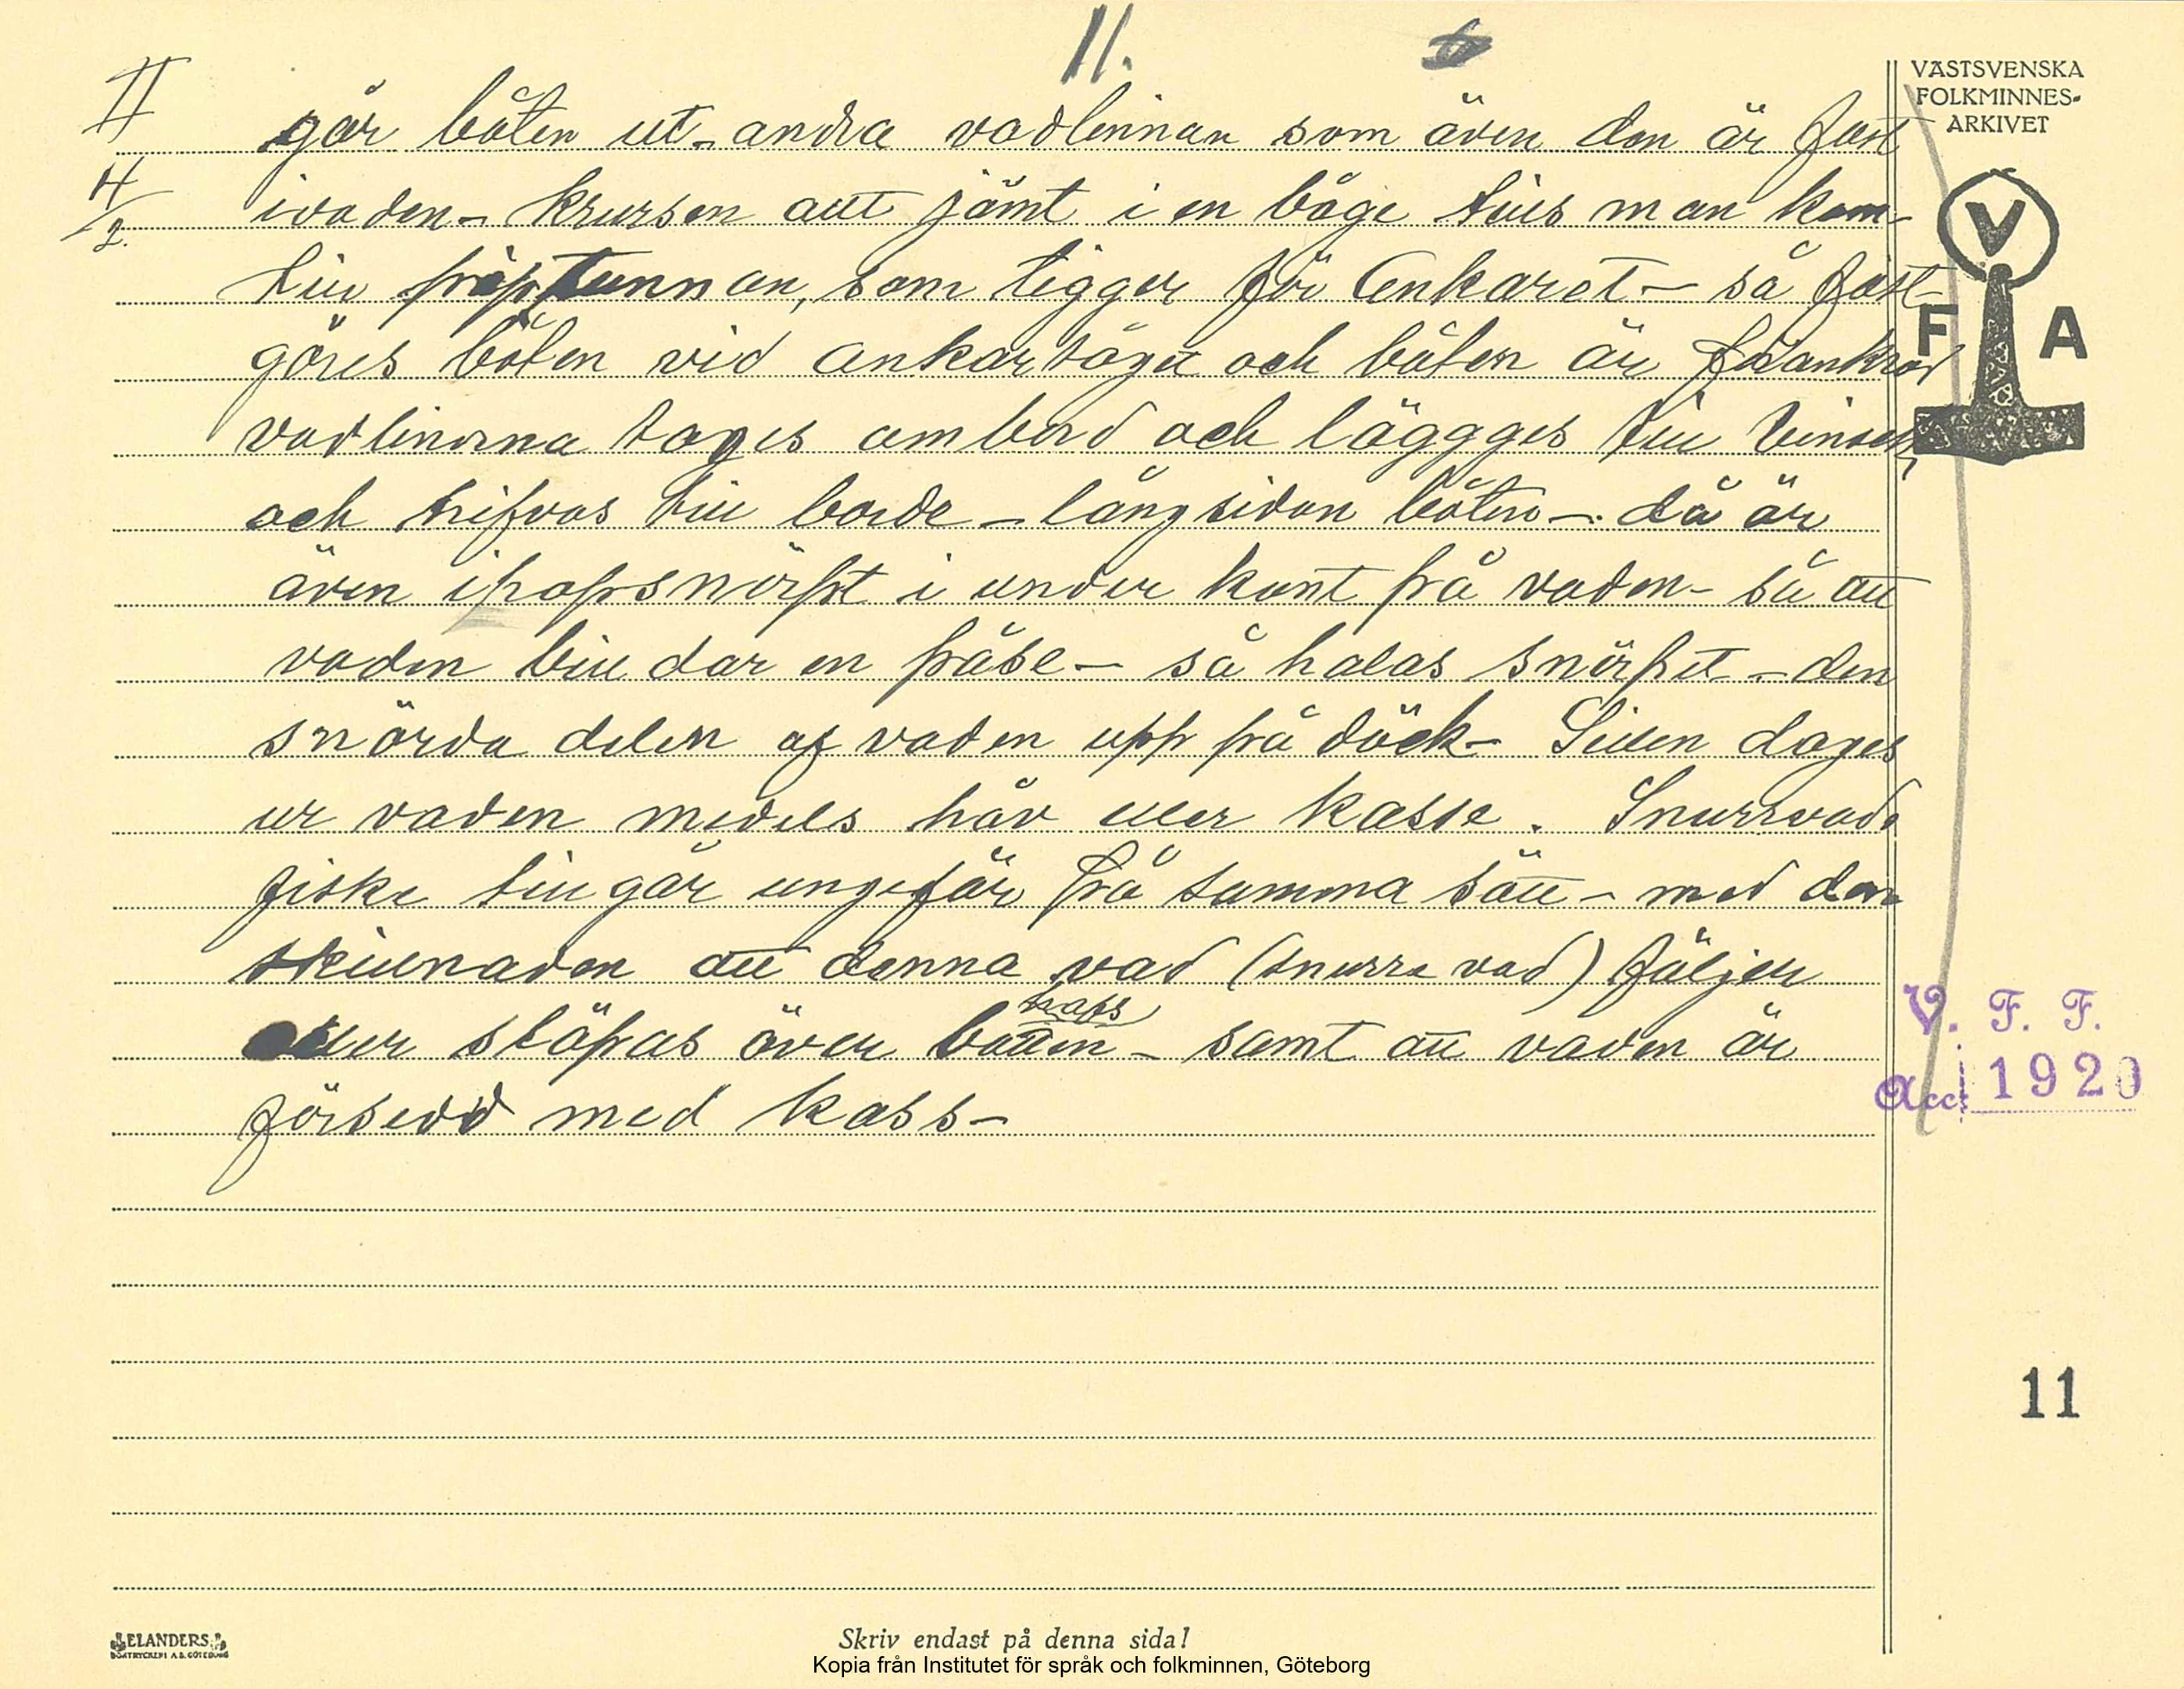 11.
VÄSTSVENSKA
FOLKMINNES-
ARKIVET
II
går båten ut - andra vadlinnan som även den är fäst
4/2.
ivaden - krursen allt jämt i en båge tills man kom-
till präptunnan, som ligger för Ankaret - så fäst-
göres båten vid ankartåget och båten är föankrad
vadlinorna tages ombord och läggges till Vinsch
och hifvas till borde - långsidan båten -. då är
även ihopsnörpt i under kant på vaden - så att
vaden billdar en påse - så halas snörpet - den
snörda delen af vaden upp på däck - Sillen dages
ur vaden medels håv eller kasse. Snurrvads
fiske tillgår ungefär På samma sätt - med den
skillnaden att denna vad (snurre vad) föl­jer
eller slöpas över hafs botten - samt att vaden är
försedd med kass -
V
F A
V. F. F.
Acc. 1920
11
ELANDERS
BOKTRYCKERI A.B. GÖTEBORG
Skriv endast på denna sida!
Kopia från Institutet för språk och folkminnen, Göteborg